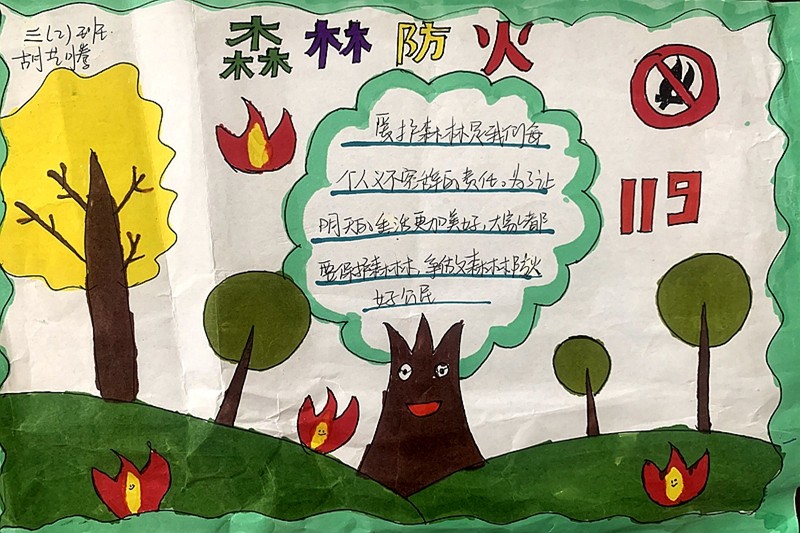 三(2)班
胡艺
森林防火
爱护森林是我们每
个人义不容辞的责任。为了让
明天的生活更加美好,大家都
要保护森林,争做文森林防火
好公民
119